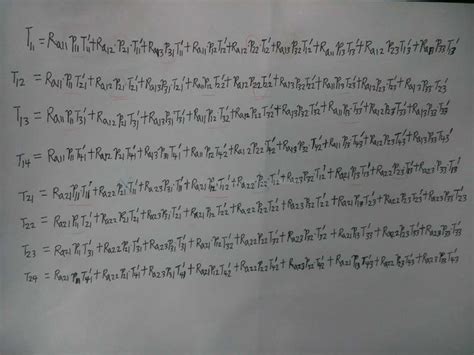 T11 = Ra11P11T11'+Ra12·P21·T11'+Ra13P31T11'+Ra11P12T12'+Ra12P22T12'+Ra13P32T12'+Ra11P13T13'+Ra12P23T13'+Ra13P33T13'
T12 = Ra11P11T21'+Ra12·P21T21'+Ra13P31T21'+Ra11P12T22'+Ra12P22T22'+Ra13P32T22'+Ra11P13T23'+Ra12P23T23'+Ra13P33T23'
T13 = Ra11P11T31'+Ra12P21T31'+Ra13P31T31'+Ra11P12T32'+Ra12P22T32'+Ra13P32T32'+Ra11P13T33'+Ra12P23T33'+Ra13P33T33'
T14 = Ra11P11T41'+Ra12P21T41'+Ra13P31T41'+Ra11P12T42'+Ra12P22T42'+Ra13P32T42'+Ra11P13T43'+Ra12P23T43'+Ra13P33T43'
T21 = Ra21P11T11'+Ra22P21T11'+Ra23P31T11'+Ra21P12T12'+Ra22P22T12'+Ra23P32T12'+Ra21P13T13'+Ra22P23T13'+Ra23P33T13'
T22 = Ra21P11T21'+Ra22P21T21'+Ra23P31T21'+Ra21P12T22'+Ra22P22T22'+Ra23P32T22'+Ra21P13T23'+Ra22P23T23'+Ra23P33T23'
T23 = Ra21P11T31'+Ra22P21T31'+Ra23P31T31'+Ra21P12T32'+Ra22P22T32'+Ra23P32T32'+Ra21P13T33'+Ra22P23T33'+Ra23P33T33'
T24 = Ra21P11T41'+Ra22P21T41'+Ra23P31T41'+Ra21P12T42'+Ra22P22T42'+Ra23P32T42'+Ra21P13T43'+Ra22P23T43'+Ra23P33T43'